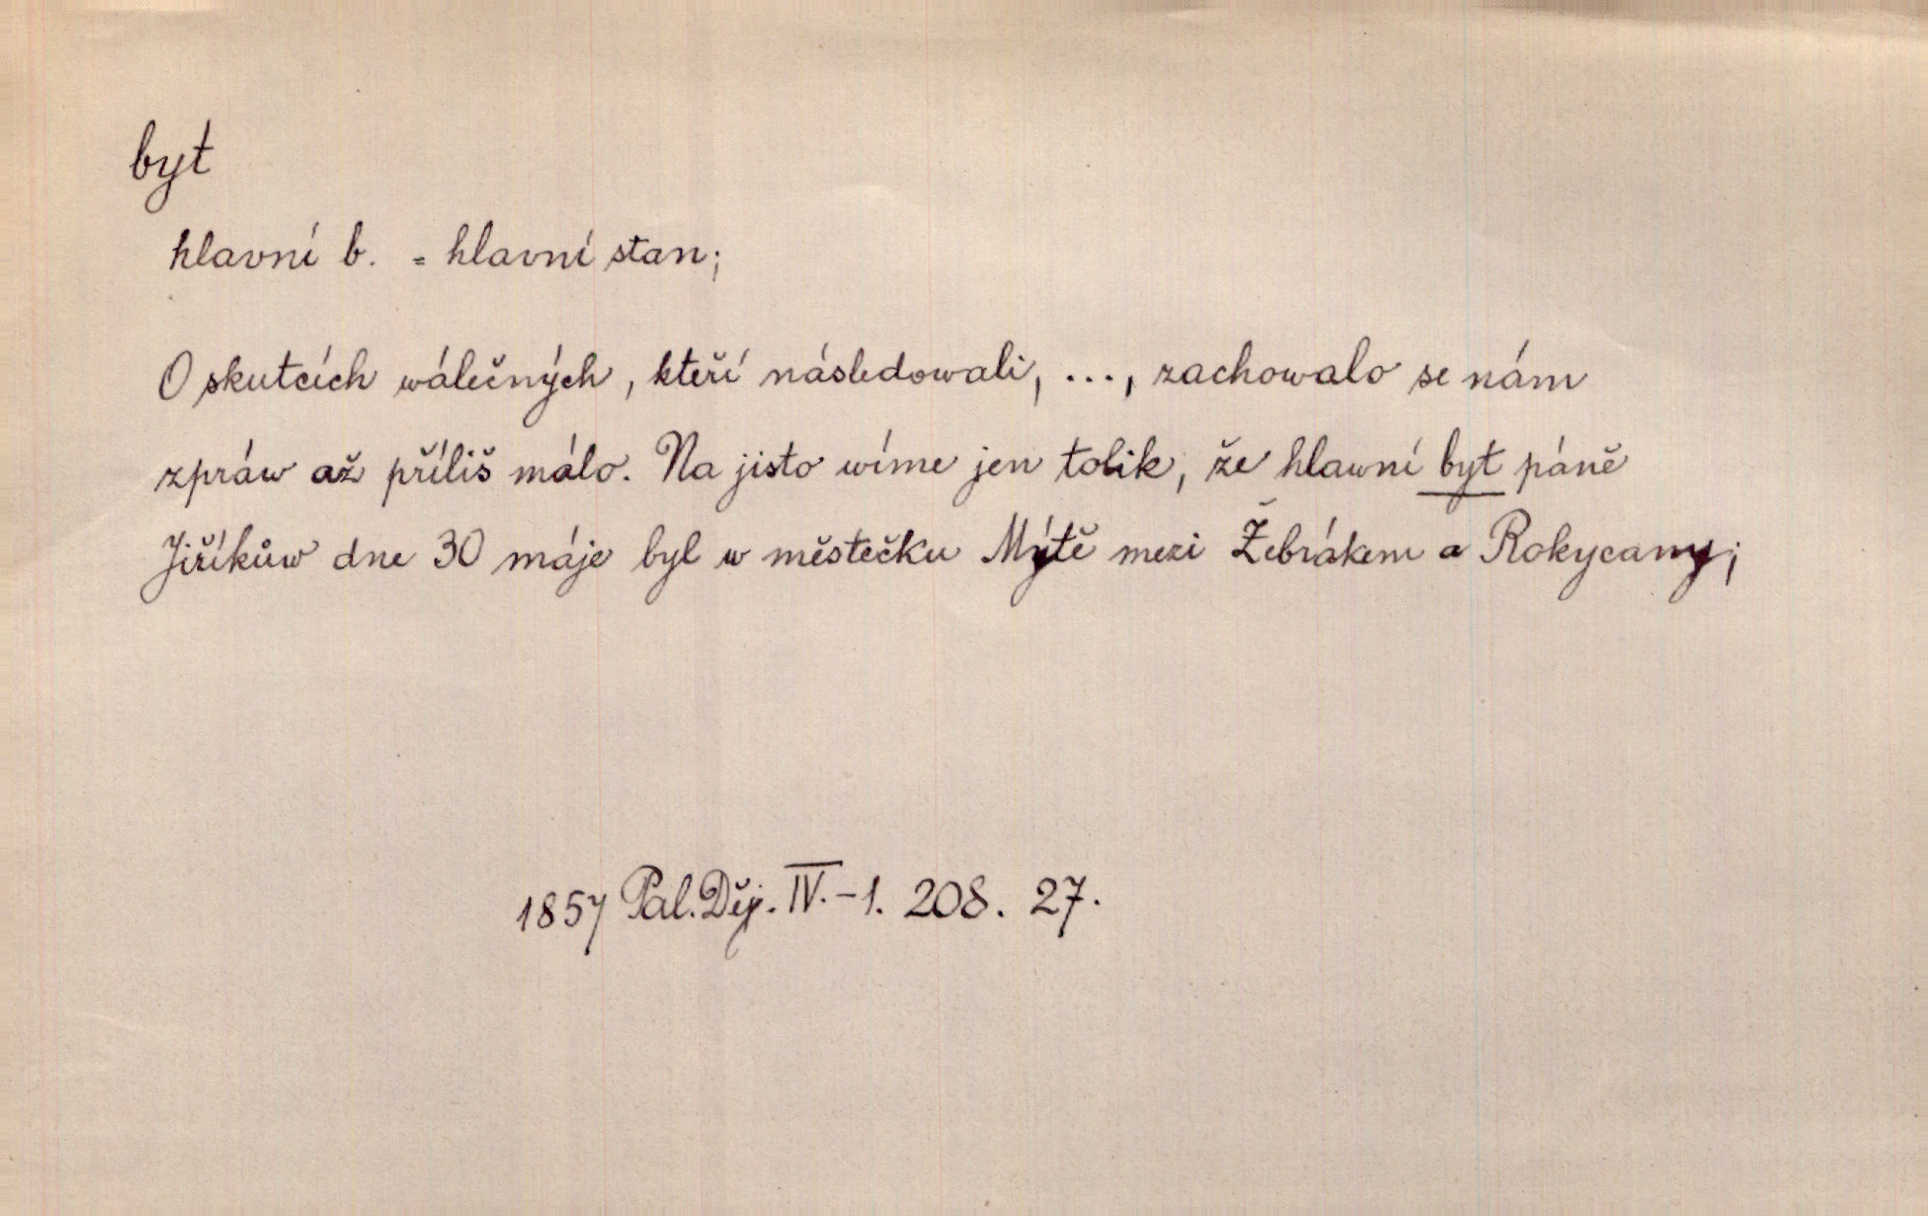 byt
hlavní b. = hlavní stan;
O skutcích wálečných, kteří následowali, ..., zachowalo se nám
zpráw až příliš málo. Na jisto wíme jen tolik, že hlawní byt páně
Jiříkůw dne 30 máje byl w městečku Mýtě mezi Žebrákem a Rokycany;
1857 Pal. Děj. IV. - 1. 208. 27.